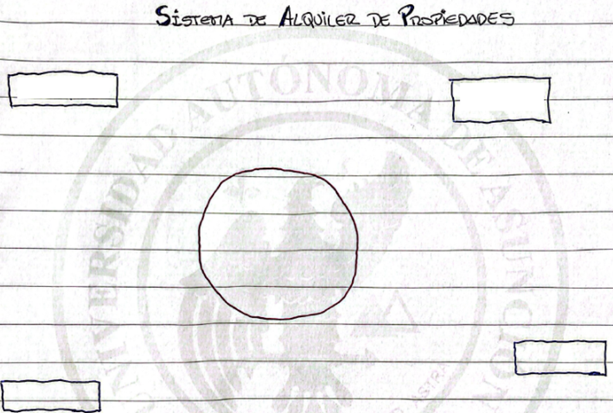 Sistema de Alquiler de Propiedades
UNIVERSIDAD AUTÓNOMA DE ASUNCIÓN
ASTRA